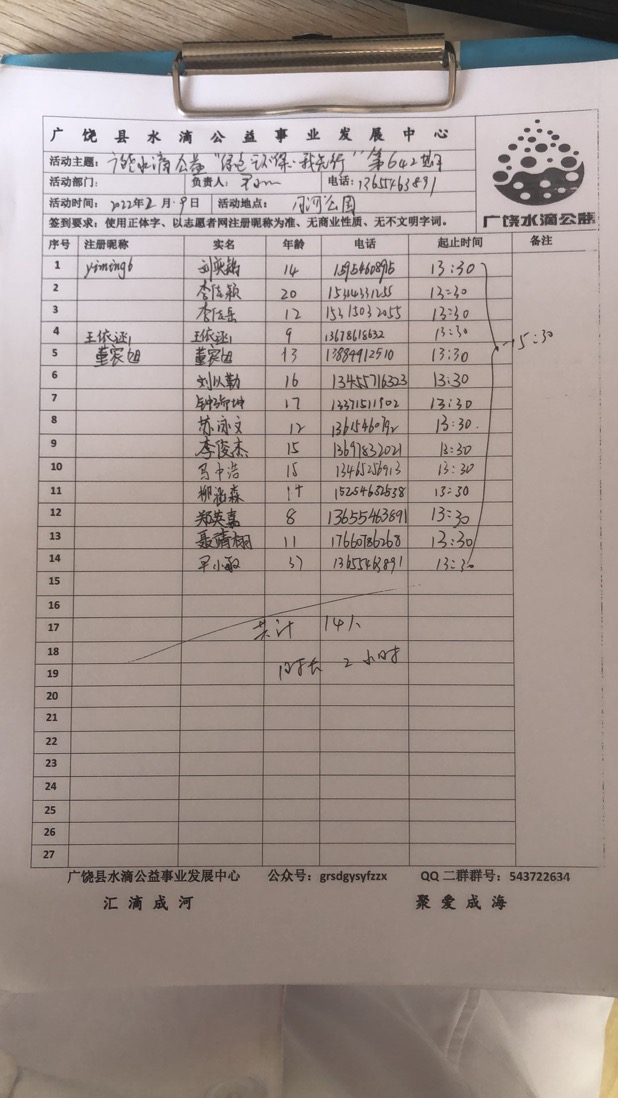 广饶县水滴公益事业发展中心
活动主题：广饶水滴公益“绿色环保·我先行”第642期
活动部门： 负责人： 电话：13655463891
活动时间：2022年2月9日 活动地点：月河公园
广饶水滴公益
签到要求：使用正体字、以志愿者网注册昵称为准、无商业性质、无不文明字词。
序号 注册昵称 实名 年龄 电话 起止时间 备注
1 yiming6 14 13:30
2 20 13:30
3 12 15315032055 13:30
4 王依涵 王依涵 9 13678616632 13:30
5 13 13884912510 13:30
15:30
6 刘从勤 16 13455716323 13:30
7 17 13371511902 13:30
8 12 13:30
9 李俊杰 15 13697832021 13:30
10 马中浩 15 13465256913 13:30
11 柳涵森 15254652538 13:30
12 郑英嘉 8 13655463891 13:30
13 11 17660786268 13:30
14 37 13655463891 13:30
15
16
17 共计 14人
18
19 时长 2小时
20
21
22
23
24
25
26
27
广饶县水滴公益事业发展中心 公众号：grsdgysyfzzx QQ二群群号：543722634
汇滴成河 聚爱成海